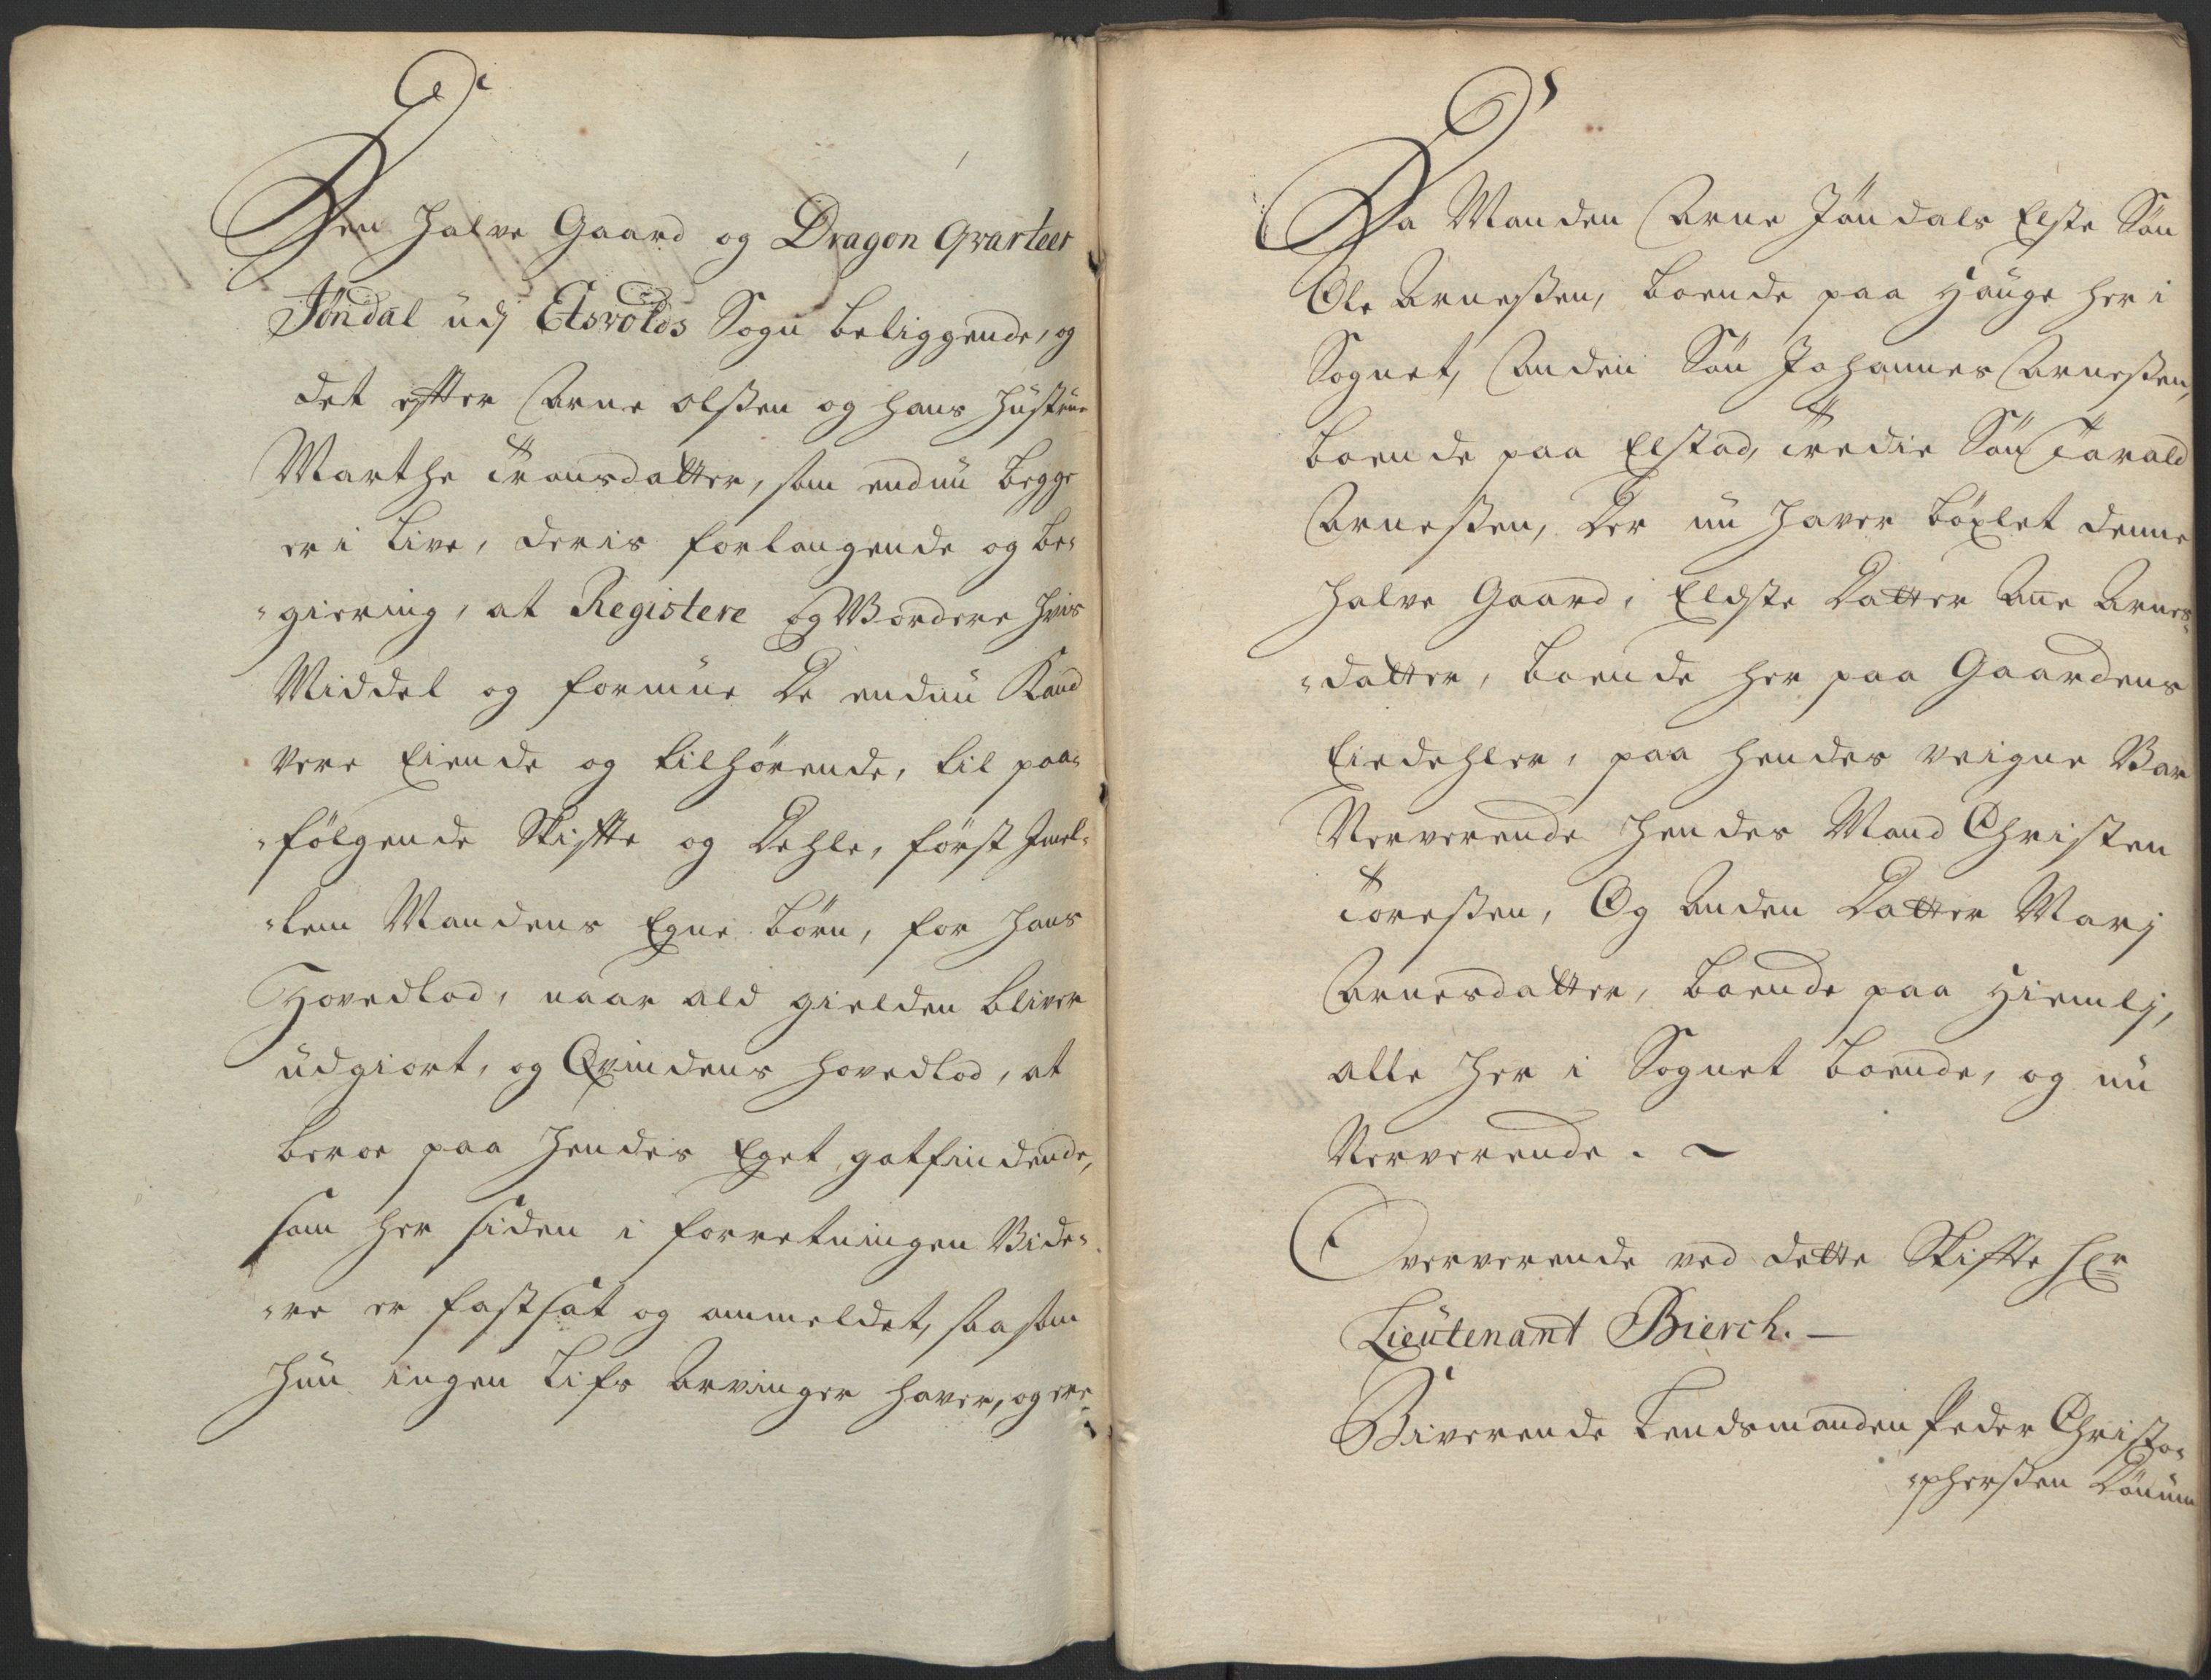 Den Halve Gaard og Dragon Qvarteer
Jöndal udj Etsvolds Sogn beliggende, og
det efter Arne Olssen og hans Hüstrue
Marthe Tronsdatter, som endnü begge
er i Live, deris forlangende og be-
-giering, at Registere og Vordere hvis
Middel og formüe De endnü Kand
Vere Eiende og tilhörende, til paa-
-fölgende Skiffte og Dehle, först Imel-
-lem Mandens Egne börn, for hans
Hovedlod, naar ald gielden bliver
üdgiort, og Qvindens Hovedlod, at
beroe paa Hendes Eget gotfindende,
som her siden i forretningen Vide-
-re er fastsat og anmeldet, saasom
Hün ingen Lifs Arvinger haver, og ere
Da Manden Arne Jöndals Elste Sön
Ole Arnessen, boende paa Haüge her i
Sognet, Anden Sön Johannes Arnessen,
boende paa Elstad, Tredie Sön Tarald
Arnessen, Der nü haver böxlet denne
halve Gaard, Eldste Datter Ane Arnes-
-datter, boende her paa Gaardens
Eiedehler, paa hendes veigne Var
Nerverende hendes Mand Christen
Toressen, Og Anden Datter Marj
Arnesdatter, boende paa Hiemlj,
alle her i Sognet boende, og nü
Nerverende.
Oververende ved dette Skiffte Hr
Lieütenant Bierch. —
Biverende Lendsmanden Peder Christo-
-pherssen Lönüm